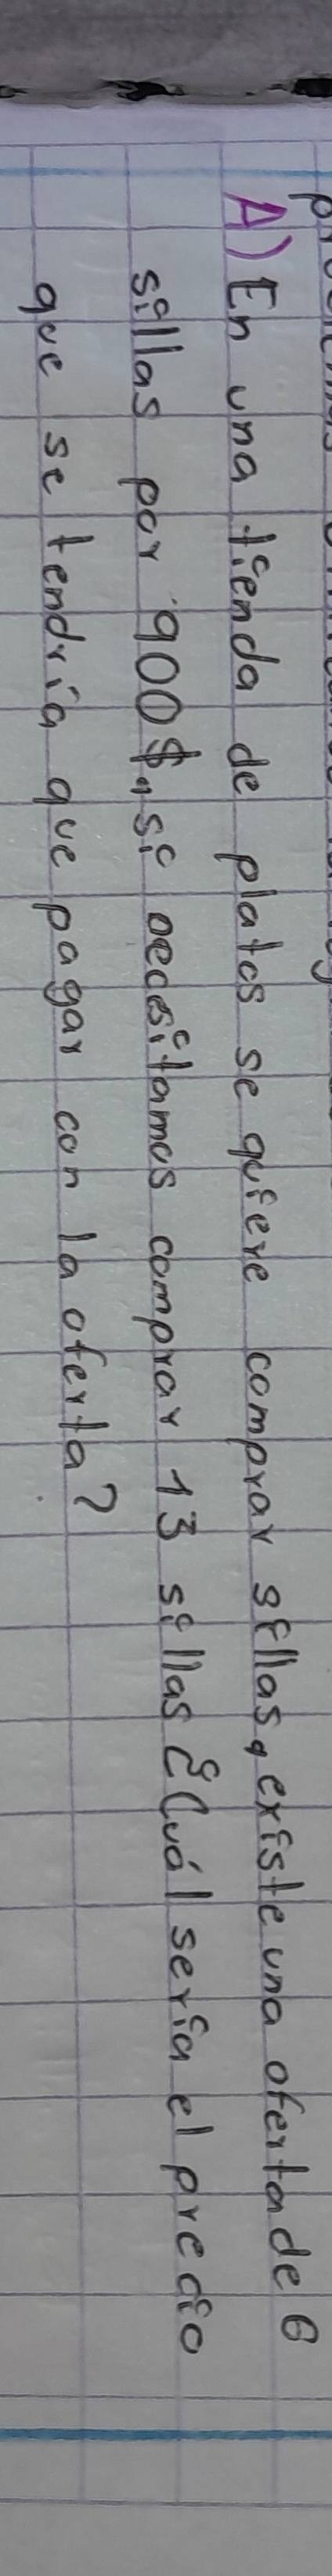 A) En una tienda de platos se quiere comprar sillas, existe una oferta de 6
sillas por 900$, si necesitamos comprar 13 sillas ¿Cuál sería el precio
que se tendría que pagar con la oferta?